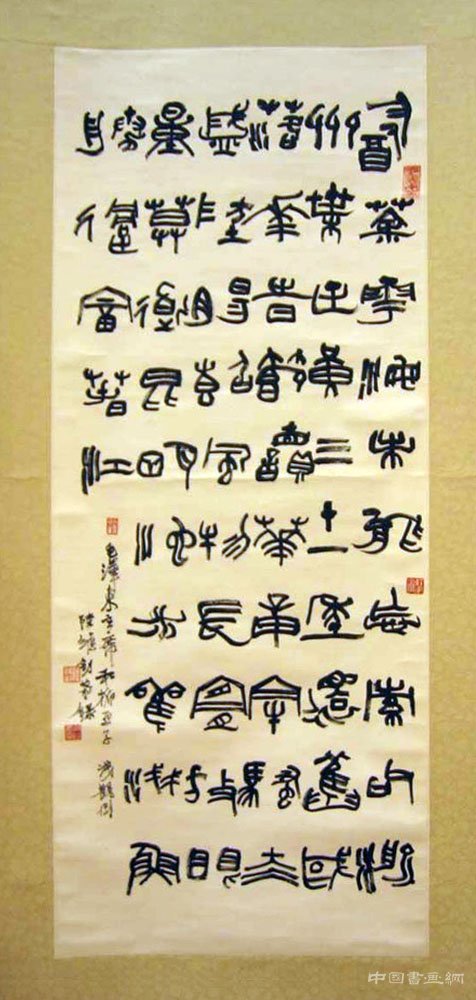 飲茶粵海未能忘索句渝
州葉正黃三十一年還舊國
落花時節讀華章牢騷太
盛防腸斷風物長宜放眼
量莫道昆明池水觀淺魚
勝過富春江
毛澤東主席和柳亞子 淺觀倒
陸維釗敬錄
中國書畫網